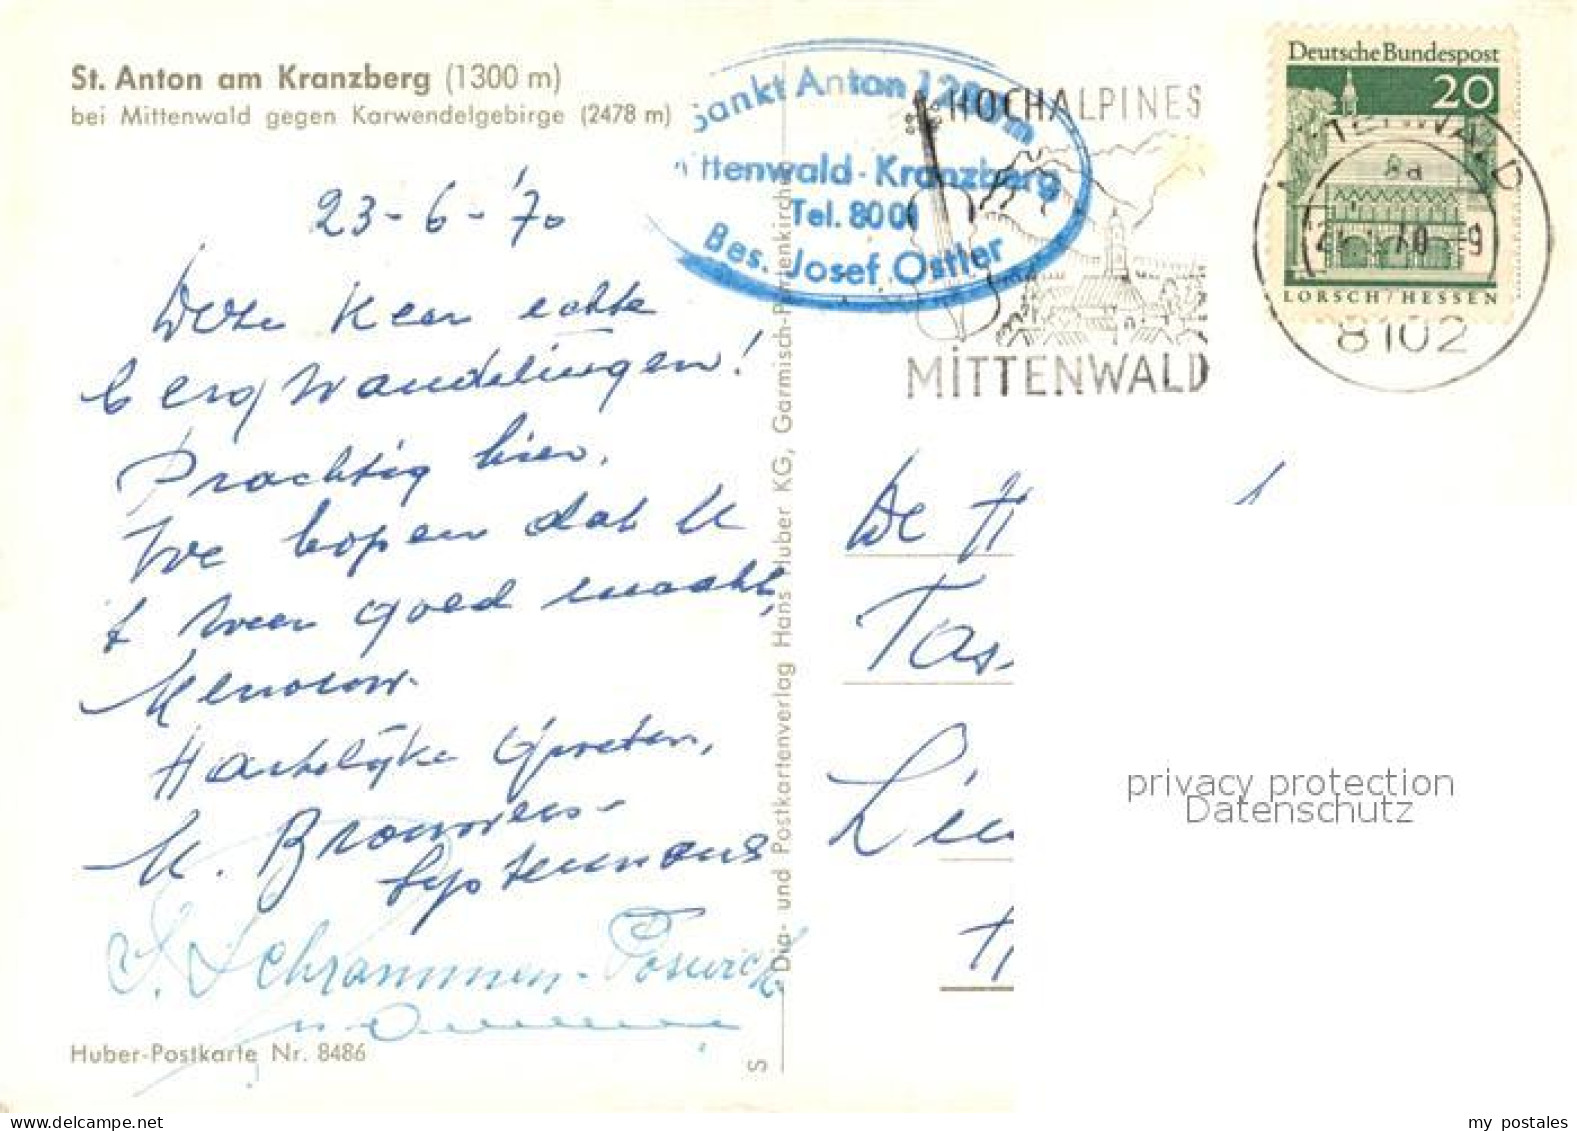 St. Anton am Kranzberg (1300 m)
bei Mittenwald gegen Karwendelgebirge (2478 m)
23-6-'70
Deze Keer echte
bergwandelingen!
Prachtig hier.
We hopen dat U
't weer goed maakt,
Mevrouw.
Hartelijke Groeten,
M. Brouwers-
S. Schrammen-
Huber-Postkarte Nr. 8486
S
Dia- und Postkartenverlag Hans Huber KG, Garmisch-Partenkirchen
Sankt Anton 1200 m
Mittenwald-Kranzberg
Tel. 8001
Bes. Josef Ostler
HOCHALPINES
MITTENWALD
Deutsche Bundespost
20
LORSCH/HESSEN
MITTENWALD
8a
70-9
8102
De H
Tas
H
privacy protection
Datenschutz
my postales